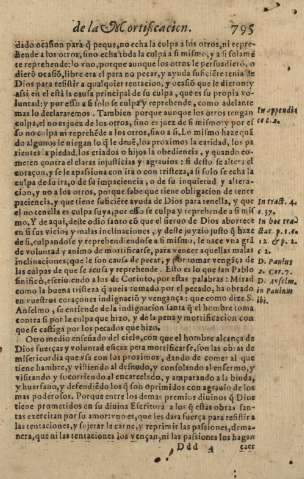 de la Mortificacion. 795
dado ocasion para q̃ peque, no echa la culpa a los otros, ni repre-
hende a los otros, sino echa toda la culpa a si mismo, y a si solamẽ
te reprehende: lo vno, porque aunque los otros le persuadierõ, o
dierõ ocasiõ, libre era el para no pecar, y ayuda suficiẽte tenia de
Dios para resistir a qualquier tentacion, y ocasiõ que le dieron: y
assi en el està la causa principal de su culpa, que es su propia vo-
luntad: y por esso a si solo se culpa y reprehende, como adelante
mas lo declararemos. Tambien porque aunque los otros tengan
culpa, el no es juez de los otros, sino es juez de si mismo: y por es
so no culpa ni reprehẽde a los otros, sino a si. Lo mismo haze quã
do algunos le niegan lo q̃ le deuẽ, los proximos la caridad, los pa
rientes la piedad, los criados o hijos la obediencia, y quando co-
meten contra el claras injusticias y agrauios: si desto se altera el
coraçon, y se le apassiona con ira o con tristeza, a si solo se echa la
culpa de su ira, o de su impaciencia, o de su inquietud y altera-
cion, y no a los otros, porque sabe que tiene obligacion de tener
paciencia, y que tiene suficiẽte ayuda de Dios para tenella, y que
el no tenella es culpa suya, por esso se culpa y reprehende a si mis-
mo. Y de aqui, deste odio santo cõ que el sieruo de Dios aborrece
en si sus vicios y malas inclinaciones, y deste juyzio justo q̃ haze
de si, culpandose y reprehendiendose a si mismo, le nace vna grã
de voluntad y animo de mortificarse, para vencer aquellas malas
inclinaciones, que le son causa de pecar, y por tomar vengãça de
las culpas de que se acusa y reprehende. Esto es lo que san Pablo
sinificò, escriuiendo a los de Corinto, por estas palabras: Mirad
como la buena tristeza q̃ aueis tomado por el pecado, ha obrado
en vuestros coraçones indignaciõ y vengança: que como dize S.
Anselmo, se entiende de la indignacion santa q̃ el hombre toma
contra si por la culpa que hizo, y de la pena y mortificacion con
que se castiga por los pecados que hizo.
Otro medio enseñado del cielo, con que el hombre alcança de
Dios fuerças y voluntad eficaz para mortificarse, son las obras de
misericordia que vsa con los proximos, dando de comer al que
tiene hambre, y vistiendo al desnudo, y consolando al enfermo, y
visitando y socorriendo al encarcelado, y amparando a la biuda,
y huerfano, y defendiẽdo los q̃ son oprimidos con agrauio de los
mas poderosos. Porque entre los demas premios diuinos q̃ Dios
tiene prometidos en su diuina Escritura a los q̃ estas obras san-
tas exercitan por su amor, vno es, que les dara fuerça para resistir a
las tentaciones, y sojetar la carne, y reprimir las passiones, de ma-
nera, que ni las tentaciones los vençan, ni las passiones los hagan
Ddd caer
In appendix
In tract. 4.
c. 37.
In hoc tract
D. Paulus
2. Cor. 7.
D. Anselm.
ibi.